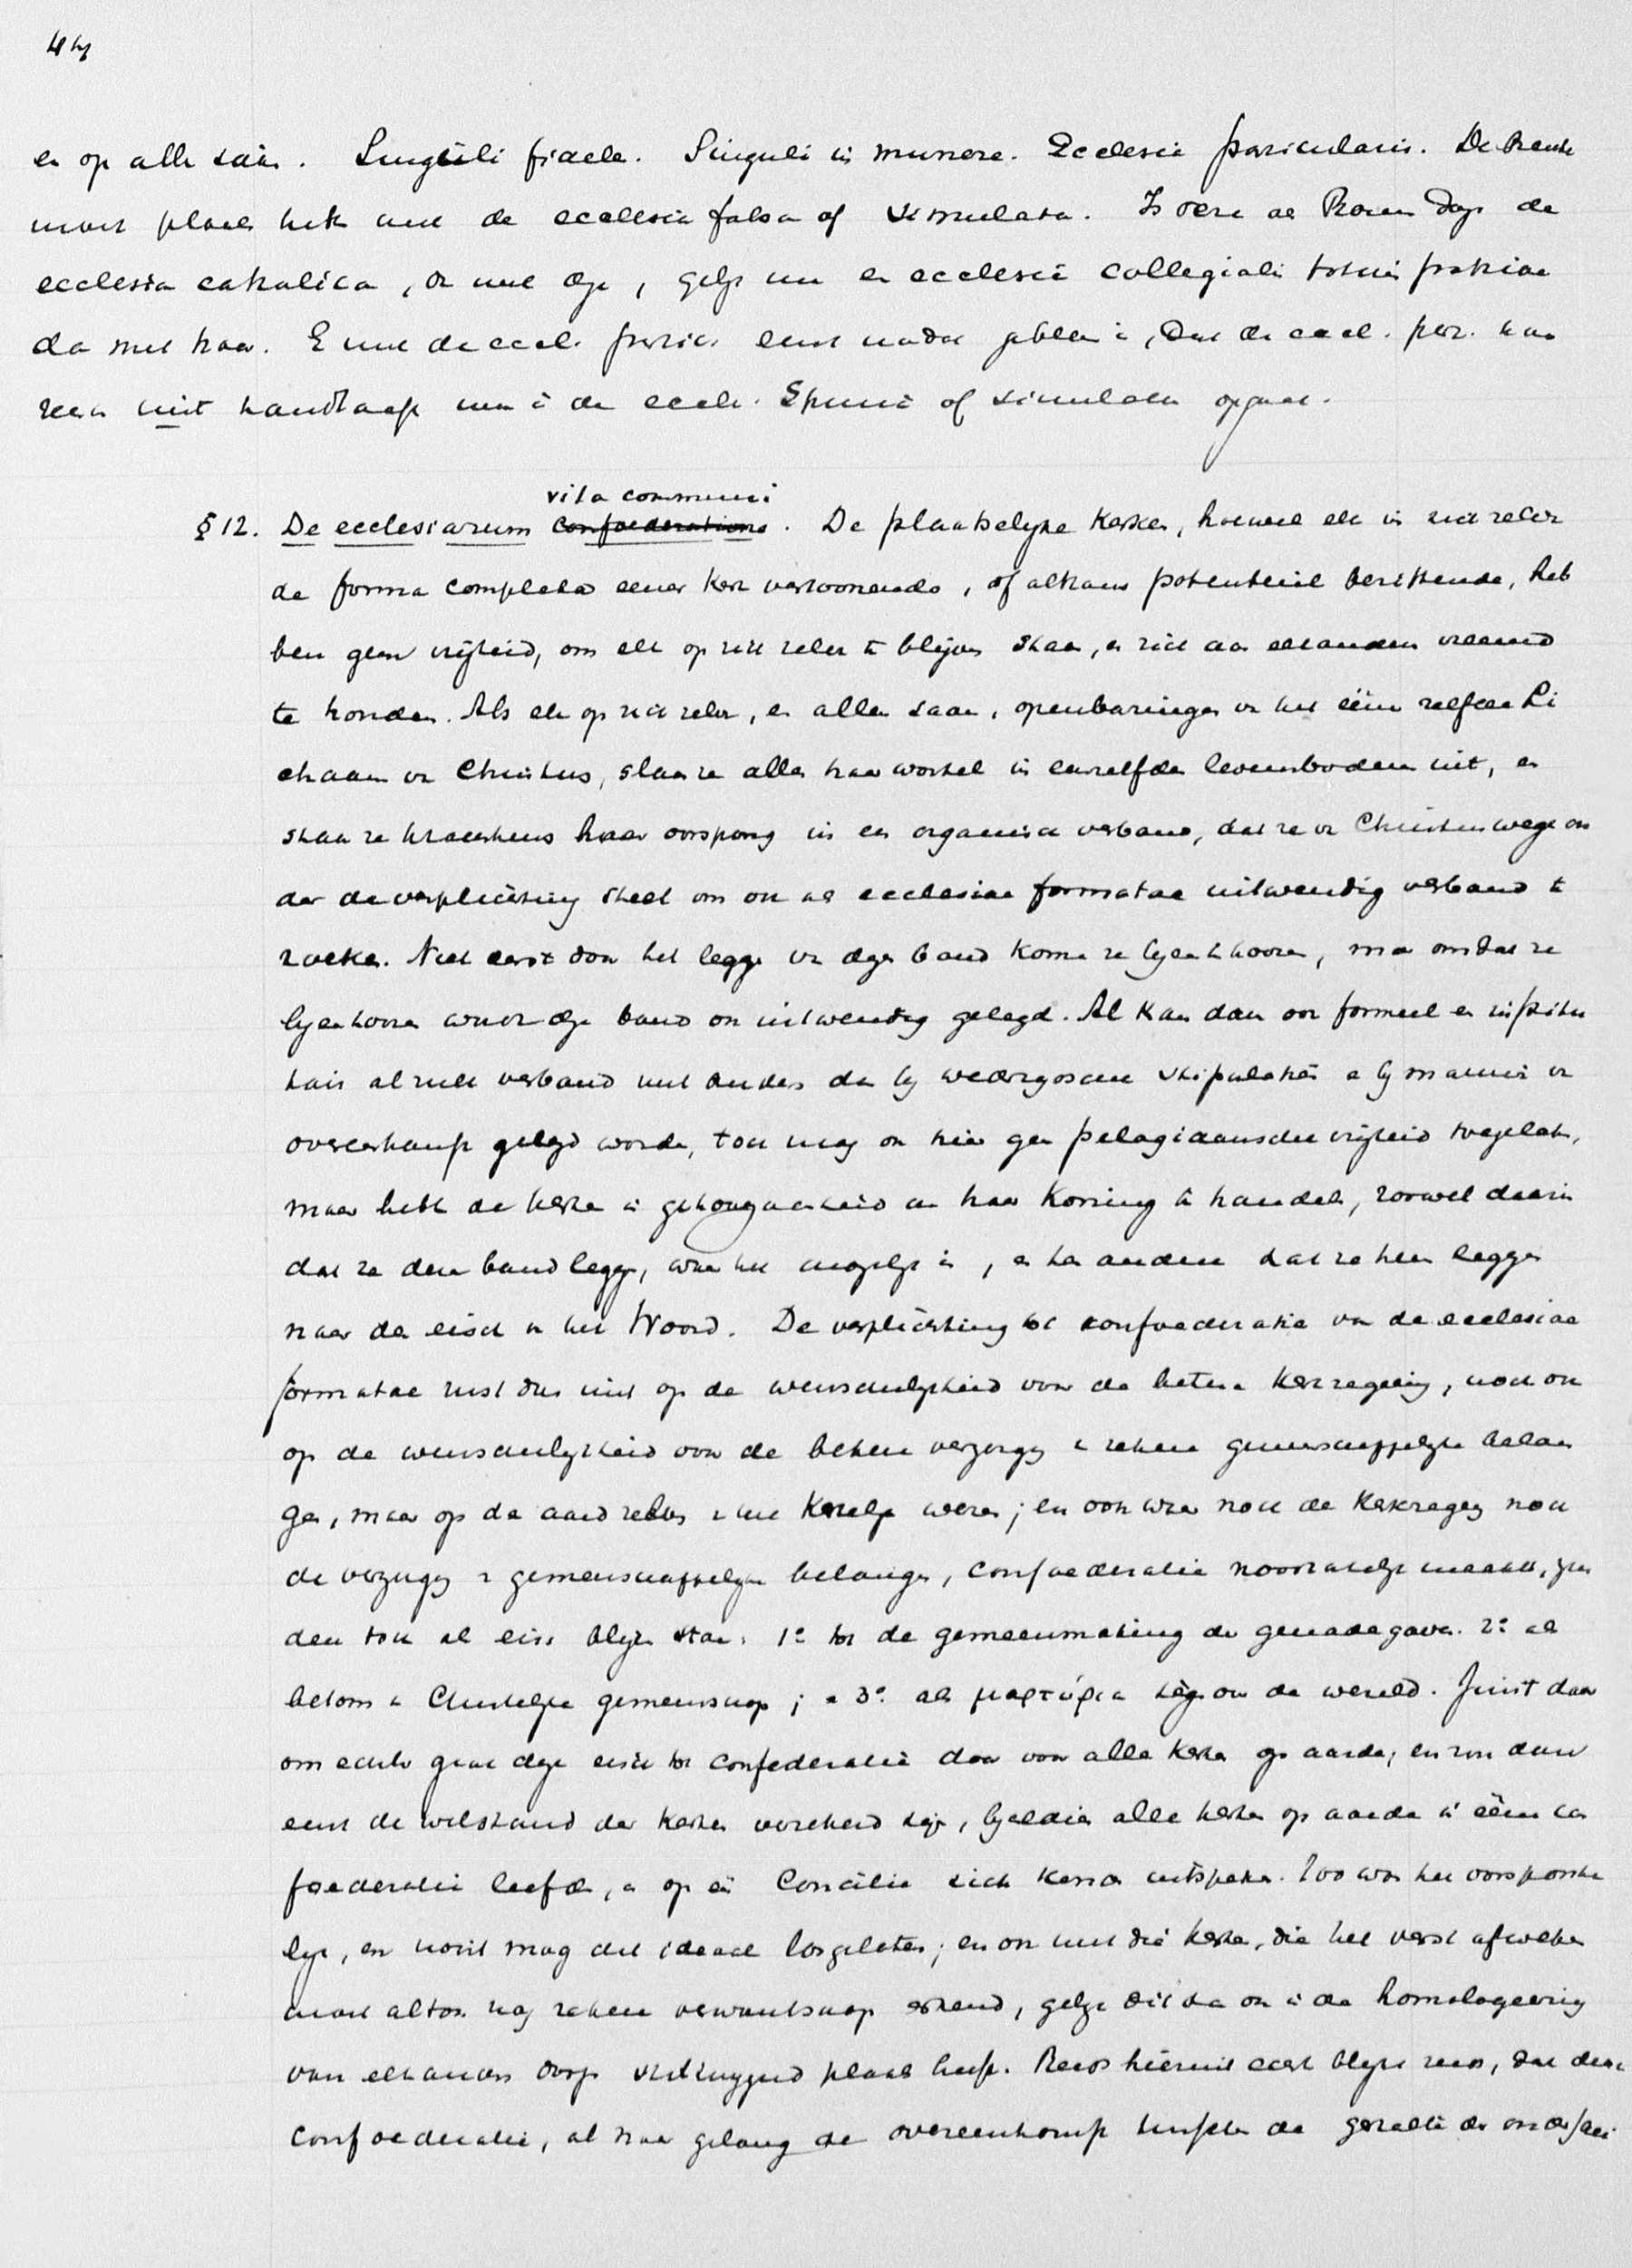 en op alle saâm. Singuli fideles. Singuli in munere. Ecclesia particularis. De
moet plaats hebben met de ecclesia falsa of simulata. Is
ecclesia catholica, en met deze, gelijk met en ecclesia collegialis totius patriae
dan met haar. En met de eccl. partic. eerst nadat gebleken is, dat de eccl. par. haar
niet handhaaft maar in de eccl. Spuria of simulata opgaat.
vita communi
§ 12. De ecclesiarum confoederatione. De plaatselyke Kerken, hoewel elk in zich zelve
de forma completa eener Kerk vertoonende, of althans potentieel bezittende, heb
ben geen vrijheid, om elk op zich zelve te blijven staan, en zich aan elkander vreemd
te houden. Als elk op zich zelve, en allen saam, openbaringen van het ééne zelfde Li
chaam van Christus, slaan ze alle haar wortel in eenzelfden levensbodem uit, en
staan ze krachtens haar oorsprong in een organisch verband, dat ze van Christuswege on
der de verplichting stelt om ook als ecclesiae formatae uitwendig verband te
zoeken. Niet eerst door het leggen van dezen band komen ze byeen te hooren, maar omdat ze
byeenhooren wordt deze band ook uitwendig gelegd. Al kan dan ook formeel en institu
tair alzulk verband niet anders dan by wederzydsche stipulatie en by manier van
overeenkomst gelegd worden, toch mag ook hier geen pelagiaansche vrijheid toegelaten,
maar hebben de kerken in gehoorzaamheid aan haar Koning te handelen, zoowel daarin
dat ze den band leggen, waar het mogelijk is, en ten andere dat ze hem leggen
naar den eisch van het Woord. De verplichting tot confoederatie van de ecclesiae
formatae rust dus niet op de wenschelykheid voor de betere Kerkregeering, noch ook
op de wenschelykheid voor de betere verzorging van zekere gemeenschappelyke belan
gen, maar op den aard zelven van het Kerkelijk wezen; en ook waar noch de Kerkregeering noch
de verzorging van gemeenschappelyke belangen, confoederatie noodzakelijk maakte, zou
den toch als eisch blyven staan: 1º tot de gemeenmaking der genadegaven. 2º als
betoon van Christelyke gemeenschap; en 3º. als μαρτύρια tegenover de wereld. Juist daar
om echter gaat deze eisch tot confederatie door voor alle Kerken op aarde; en zou dan
eerst de welstand der Kerken verzekerd zijn, byaldien alle kerken op aarde in ééne con
foederatie leefden, en op één Concilie zich konden uitspreken. Zoo was het oorspronke
lyk, en nooit mag dit ideaal losgelaten; en ook met die kerken, die het verst afweken
moet altoos nog zekere verwantschap erkend, gelijk dit dan ook in de homologeering
van elkanders doop stilzwijgend plaats heeft. Reeds hieruit echter blykt reeds, dat deze
confoederatie, al naar gelang de overeenkomst tusschen de gezalte der onderschei